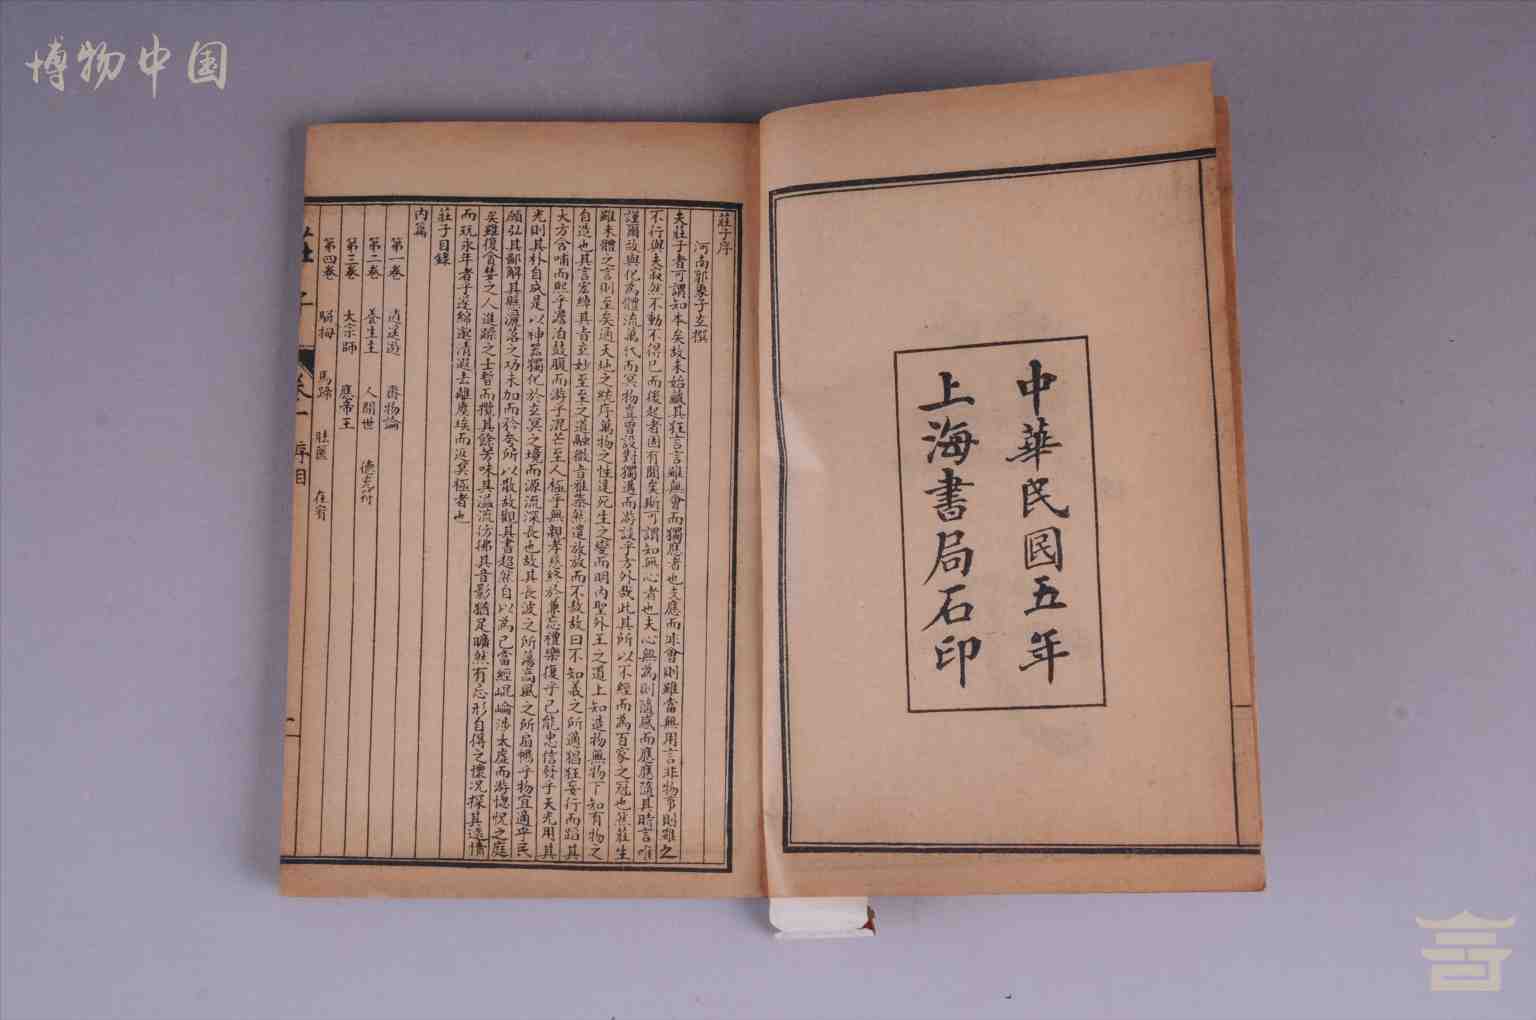 博物中国
中華民國五年
上海書局石印
莊子序
河南郭象子玄撰
夫莊子者可謂知本矣故未始藏其狂言言雖無會而獨應者也夫應而非會則雖當無用言非物事則雖之
不行與夫寂然不動不得已而後起者固有間矣斯可謂知無心者也夫心無為則隨感而應應隨其時言唯
謹爾故與化為體流萬代而冥物豈曾設對獨遘而游談乎方外哉此其所以不經而為百家之冠也然莊生
雖未體之言則至矣通天地之統序萬物之性達死生之變而明內聖外王之道上知造物無物下知有物之
自造也其言宏綽其旨玄妙至至之道融微旨雅泰然遣放放而不敖故曰不知義之所適猖狂妄行而蹈其
大方含哺而熙乎澹泊鼓腹而游乎混芒至人極乎無親孝慈終於兼忘禮樂復乎已能忠信發乎天光用其
光則其朴自成是以神器獨化於玄冥之境而源流深長也故其長波之所蕩高風之所扇暢乎物宜適乎民
願弘其鄙解其懸灑落之功未加而矜夸所以散故觀其書超然自以為已當經崐崘涉太虛而游惚怳之庭
矣雖復貪婪之人進躁之士暫而攬其餘芳味其溢流彷彿其音影猶足曠然有忘形自得之懷況探其遠情
而玩永年者乎遂綿邈清遐去離塵埃而返冥極者也
莊子目錄
內篇
第一卷 逍遙遊 齊物論
第二卷 養生主 人間世 德充符
第三卷 大宗師 應帝王
第四卷 駢拇 馬蹄 胠篋 在宥
卷一 序目